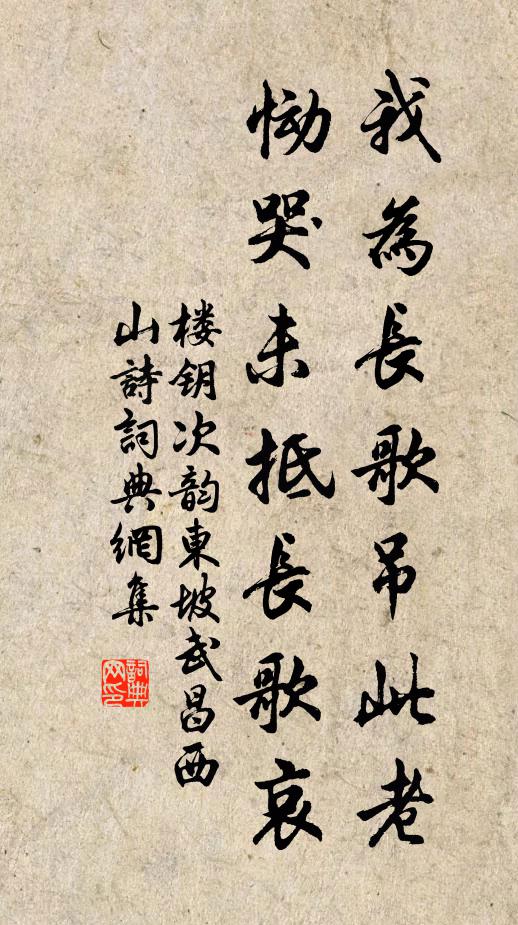 我為長歌吊此老
慟哭未抵長歌哀
楼鑰次韵東坡武昌西
山詩詞典網集
詞典网印